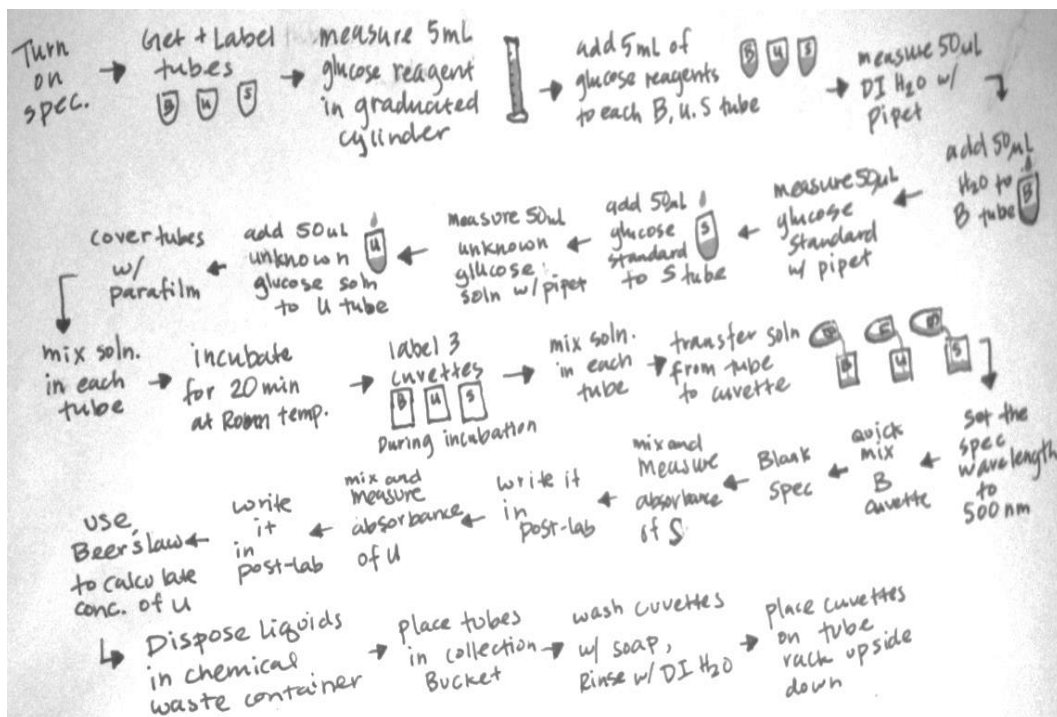 Turn
on
spec.
Get + Label
tubes
B U S
measure 5mL
glucose reagent
in graduated
cylinder
add 5mL of
glucose reagents
to each B, U, S tube
B U S
measure 50uL
DI H2O w/
pipet
add 50μL
H2O to
B tube
B
measure 50μL
glucose
standard
w/ pipet
add 50μL
glucose
standard
to S tube
S
measure 50uL
unknown
glucose
soln w/ pipet
add 50uL
unknown
glucose soln
to U tube
U
cover tubes
w/
parafilm
mix soln.
in each
tube
incubate
for 20 min
at Room temp.
label 3
cuvettes
B U S
During incubation
mix soln.
in each
tube
transfer soln
from tube
to cuvette
B U S
set the
spec
wavelength
to
500nm
quick
mix
B
cuvette
Blank
spec
mix and
Measure
absorbance
of S
write it
in
post-lab
mix and
measure
absorbance
of U
write
it
in
post-lab
use
Beer's law
to calculate
conc. of U
Dispose Liquids
in chemical
waste container
place tubes
in collection
Bucket
wash cuvettes
w/ soap,
Rinse w/ DI H2O
place cuvettes
on tube
rack upside
down